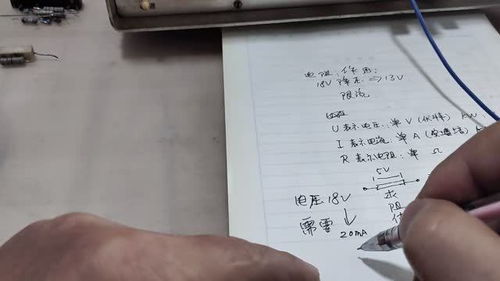 电阻:作用:
18V 降压 => 13V
限流
U 表示电压:单 V(伏特)
I 表示电流:单 A(安培)
R 表示电阻:单 Ω
5V
求
阻
电压 18V
需要 20mA